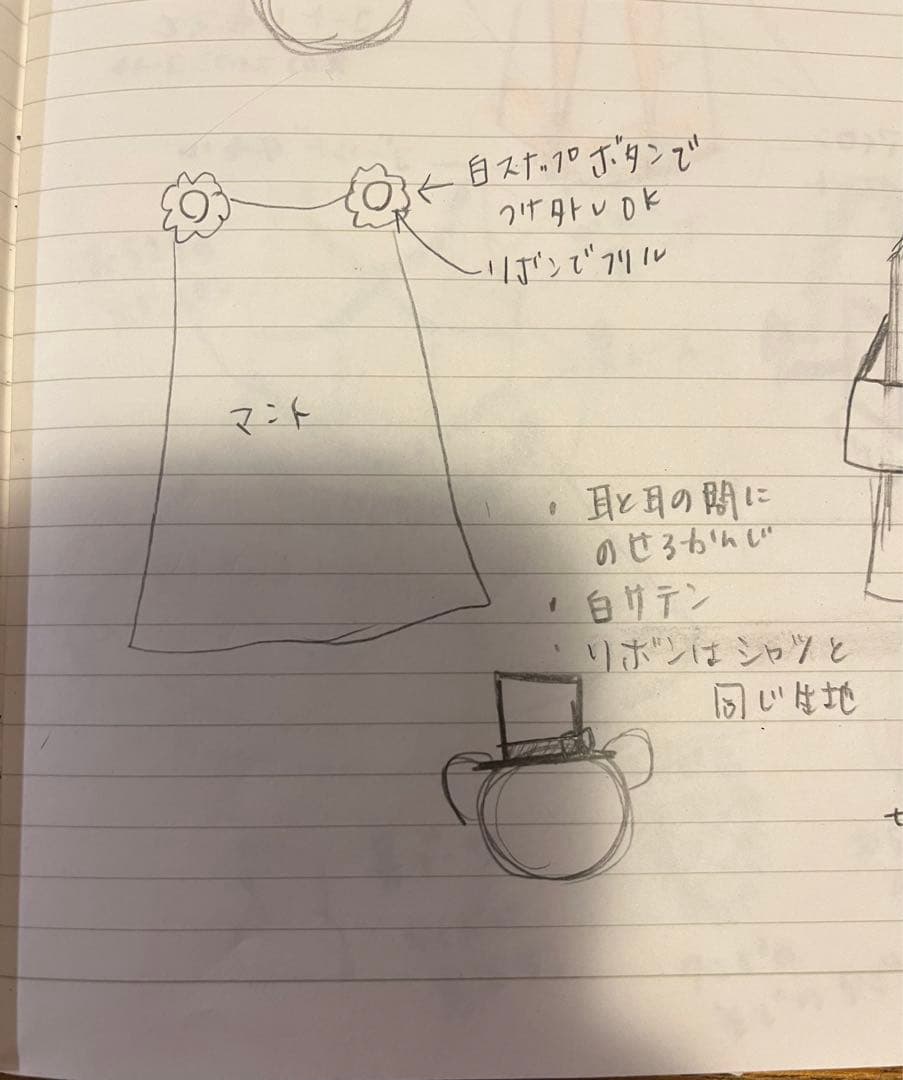 白スナップボタンで
つけ外しOK
リボンでフリル
マント
・耳と耳の間に
のせるかんじ
・白サテン
・リボンはシャツと
同じ生地